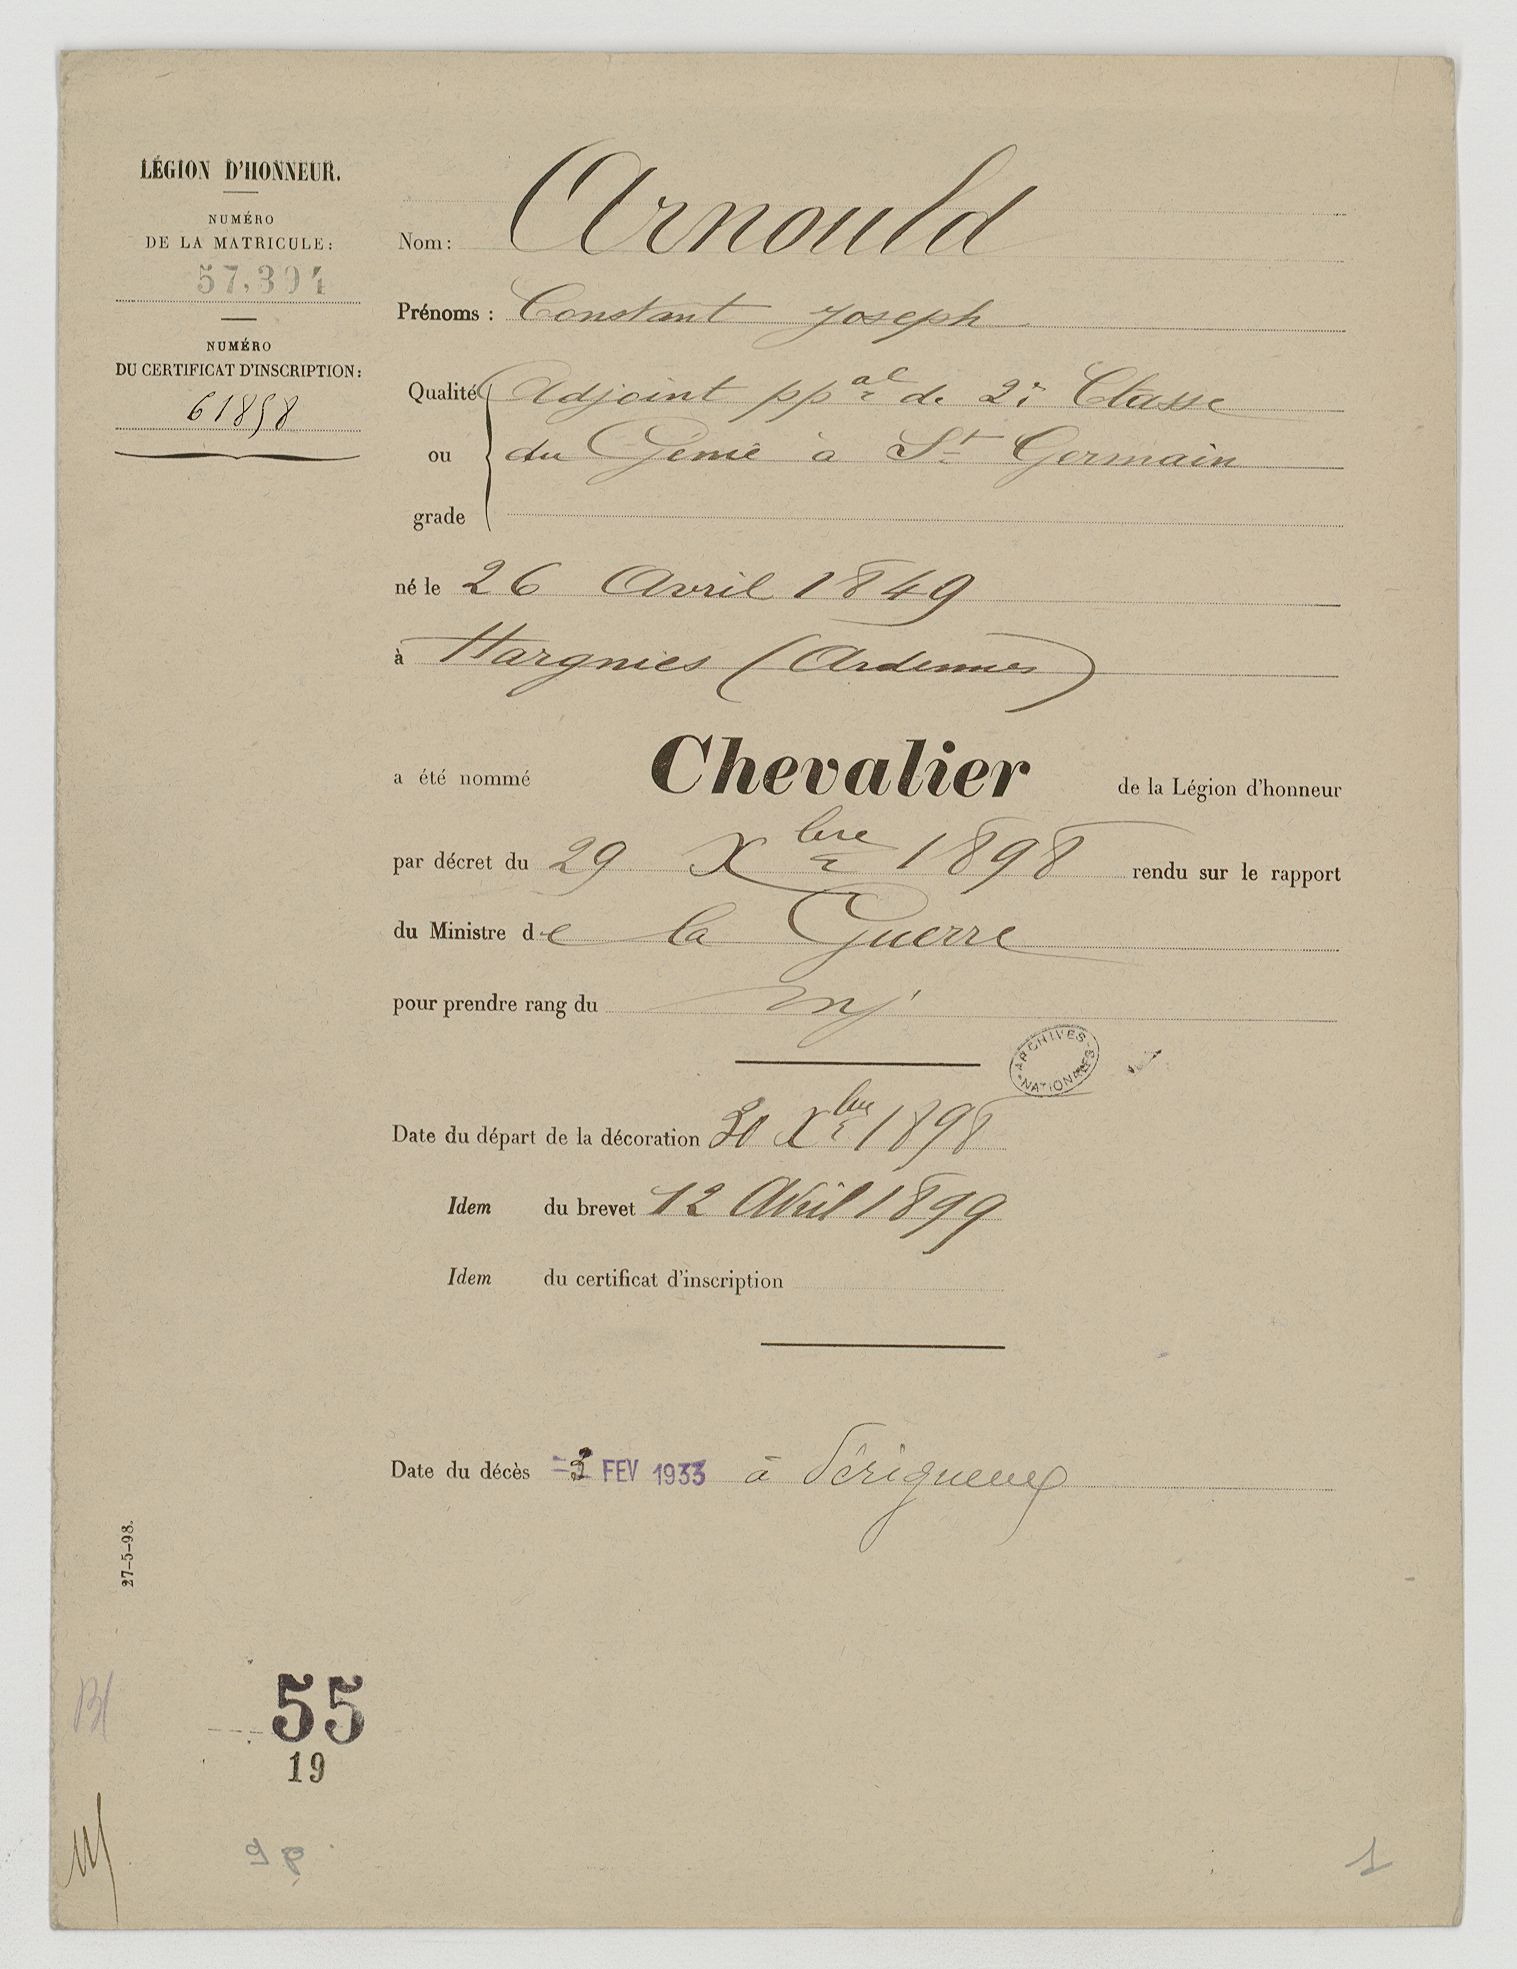 LÉGION D'HONNEUR.
NUMÉRO
DE LA MATRICULE:
57,394
NUMÉRO
DU CERTIFICAT D'INSCRIPTION:
61858
Nom: Arnould
Prénoms: Constant Joseph
Qualité Adjoint ppal de 2e Classe
ou du Génie à St Germain
grade
né le 26 Avril 1849
à Hargnies (Ardennes)
a été nommé Chevalier de la Légion d'honneur
par décret du 29 Xbre 1898 rendu sur le rapport
du Ministre de la Guerre
pour prendre rang du
ARCHIVES NATIONALES
Date du départ de la décoration 30 Xbre 1898
Idem du brevet 12 Avril 1899
Idem du certificat d'inscription
Date du décès -3 FEV 1933 à Périgueux
27-5-98.
55
19
1